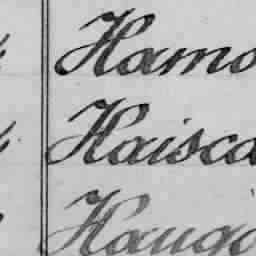 Hamo
Kaisca
Haugo